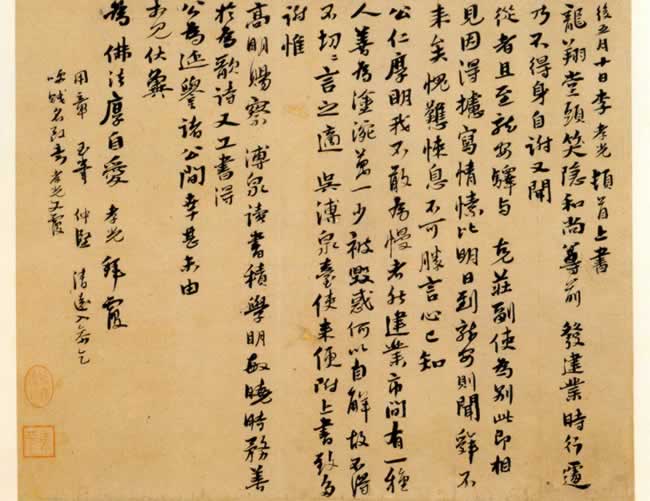 後五月十日李孝光頓首上書
龍翔堂頭笑隱和尚尊前 發建業時行遽
乃不得身自詶又聞
從者且至龍安驛与 克莊副使為別此即相
見因得攄寫情愫比明日到龍安則聞舜不
来矣愧難悚息不可勝言心已知
公仁厚明我不敢為慢者然建業市間有一種
人善為塗涴萬一少被毀惑何以自解故不得
不切切言之適 吳溥泉臺使来便附上書致多
謝惟
高明賜察 溥泉讀書積學明敏曉時務善
於為歌詩又工書得
公為延譽諸公間幸甚未由
前見伏冀
為佛法厚自愛 孝光拜覆
用章 玉峯 仲堅 清遠
孝光又覆